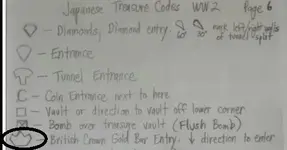 Japanese Treasure Codes WW2 Page 6
- Diamonds, Diamond entry 60° 30° walk left/right walls of tunnel split
- Entrance
- Tunnel Entrance
- Coin Entrance next to here
- Vault or direction to vault off lower corner
- Bomb over transure vault (Flush Bomb)
- British Crown Gold Bar Entry, ↓ direction to enter